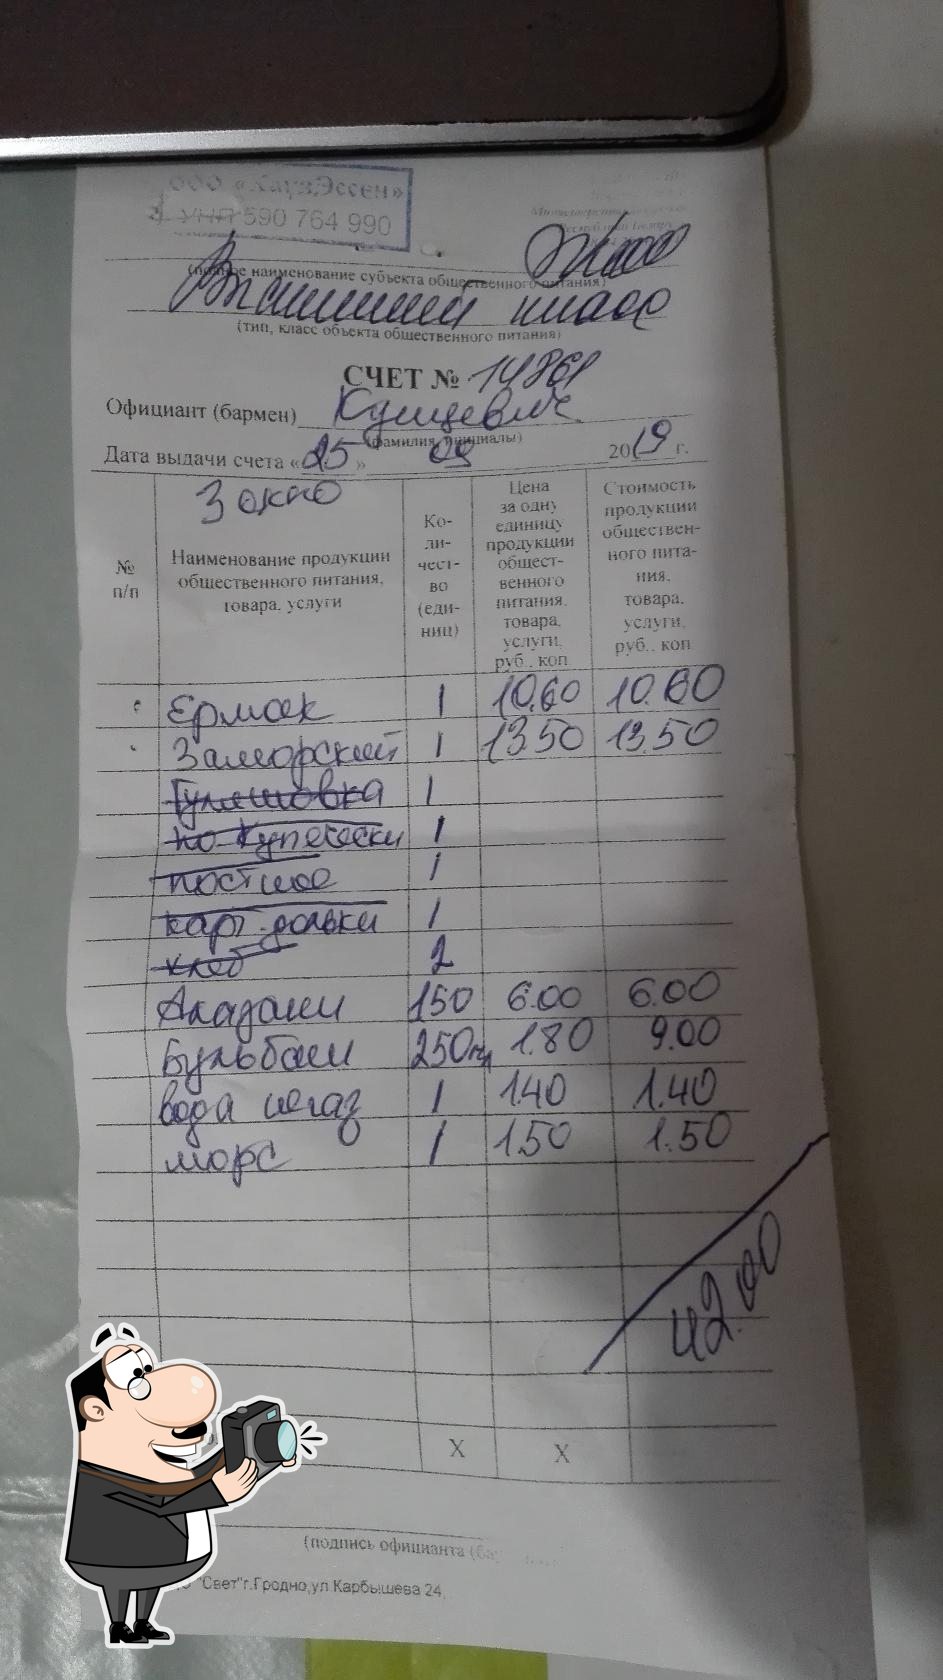 ООО «ХаузЭссен»
УНП 590 764 990
Министерства
Республики Беларусь
(полное наименование субъекта общественного питания)
Высший класс
(тип, класс объекта общественного питания)
СЧЕТ № 14861
Официант (бармен) Кушевич
(фамилия, инициалы)
Дата выдачи счета «25» 09 2019 г.
3 окно
№ п/п
Наименование продукции общественного питания, товара, услуги
Ко-ли-чест-во (еди-ниц)
Цена за одну единицу продукции общест-венного питания, товара, услуги, руб., коп
Стоимость продукции обществен-ного пита-ния, товара, услуги, руб., коп
Ермак 1 10.60 10.60
Заморский 1 13.50 13.50
1
по купечески 1
постное 1
карт. дольки 1
хлеб 2
Алазани 150 6.00 6.00
Бульбаш 250 мл 1.80 9.00
вода негаз 1 1.40 1.40
морс 1 1.50 1.50
42.00
X X
(подпись официанта
"Свет"г.Гродно,ул.Карбышева 24,